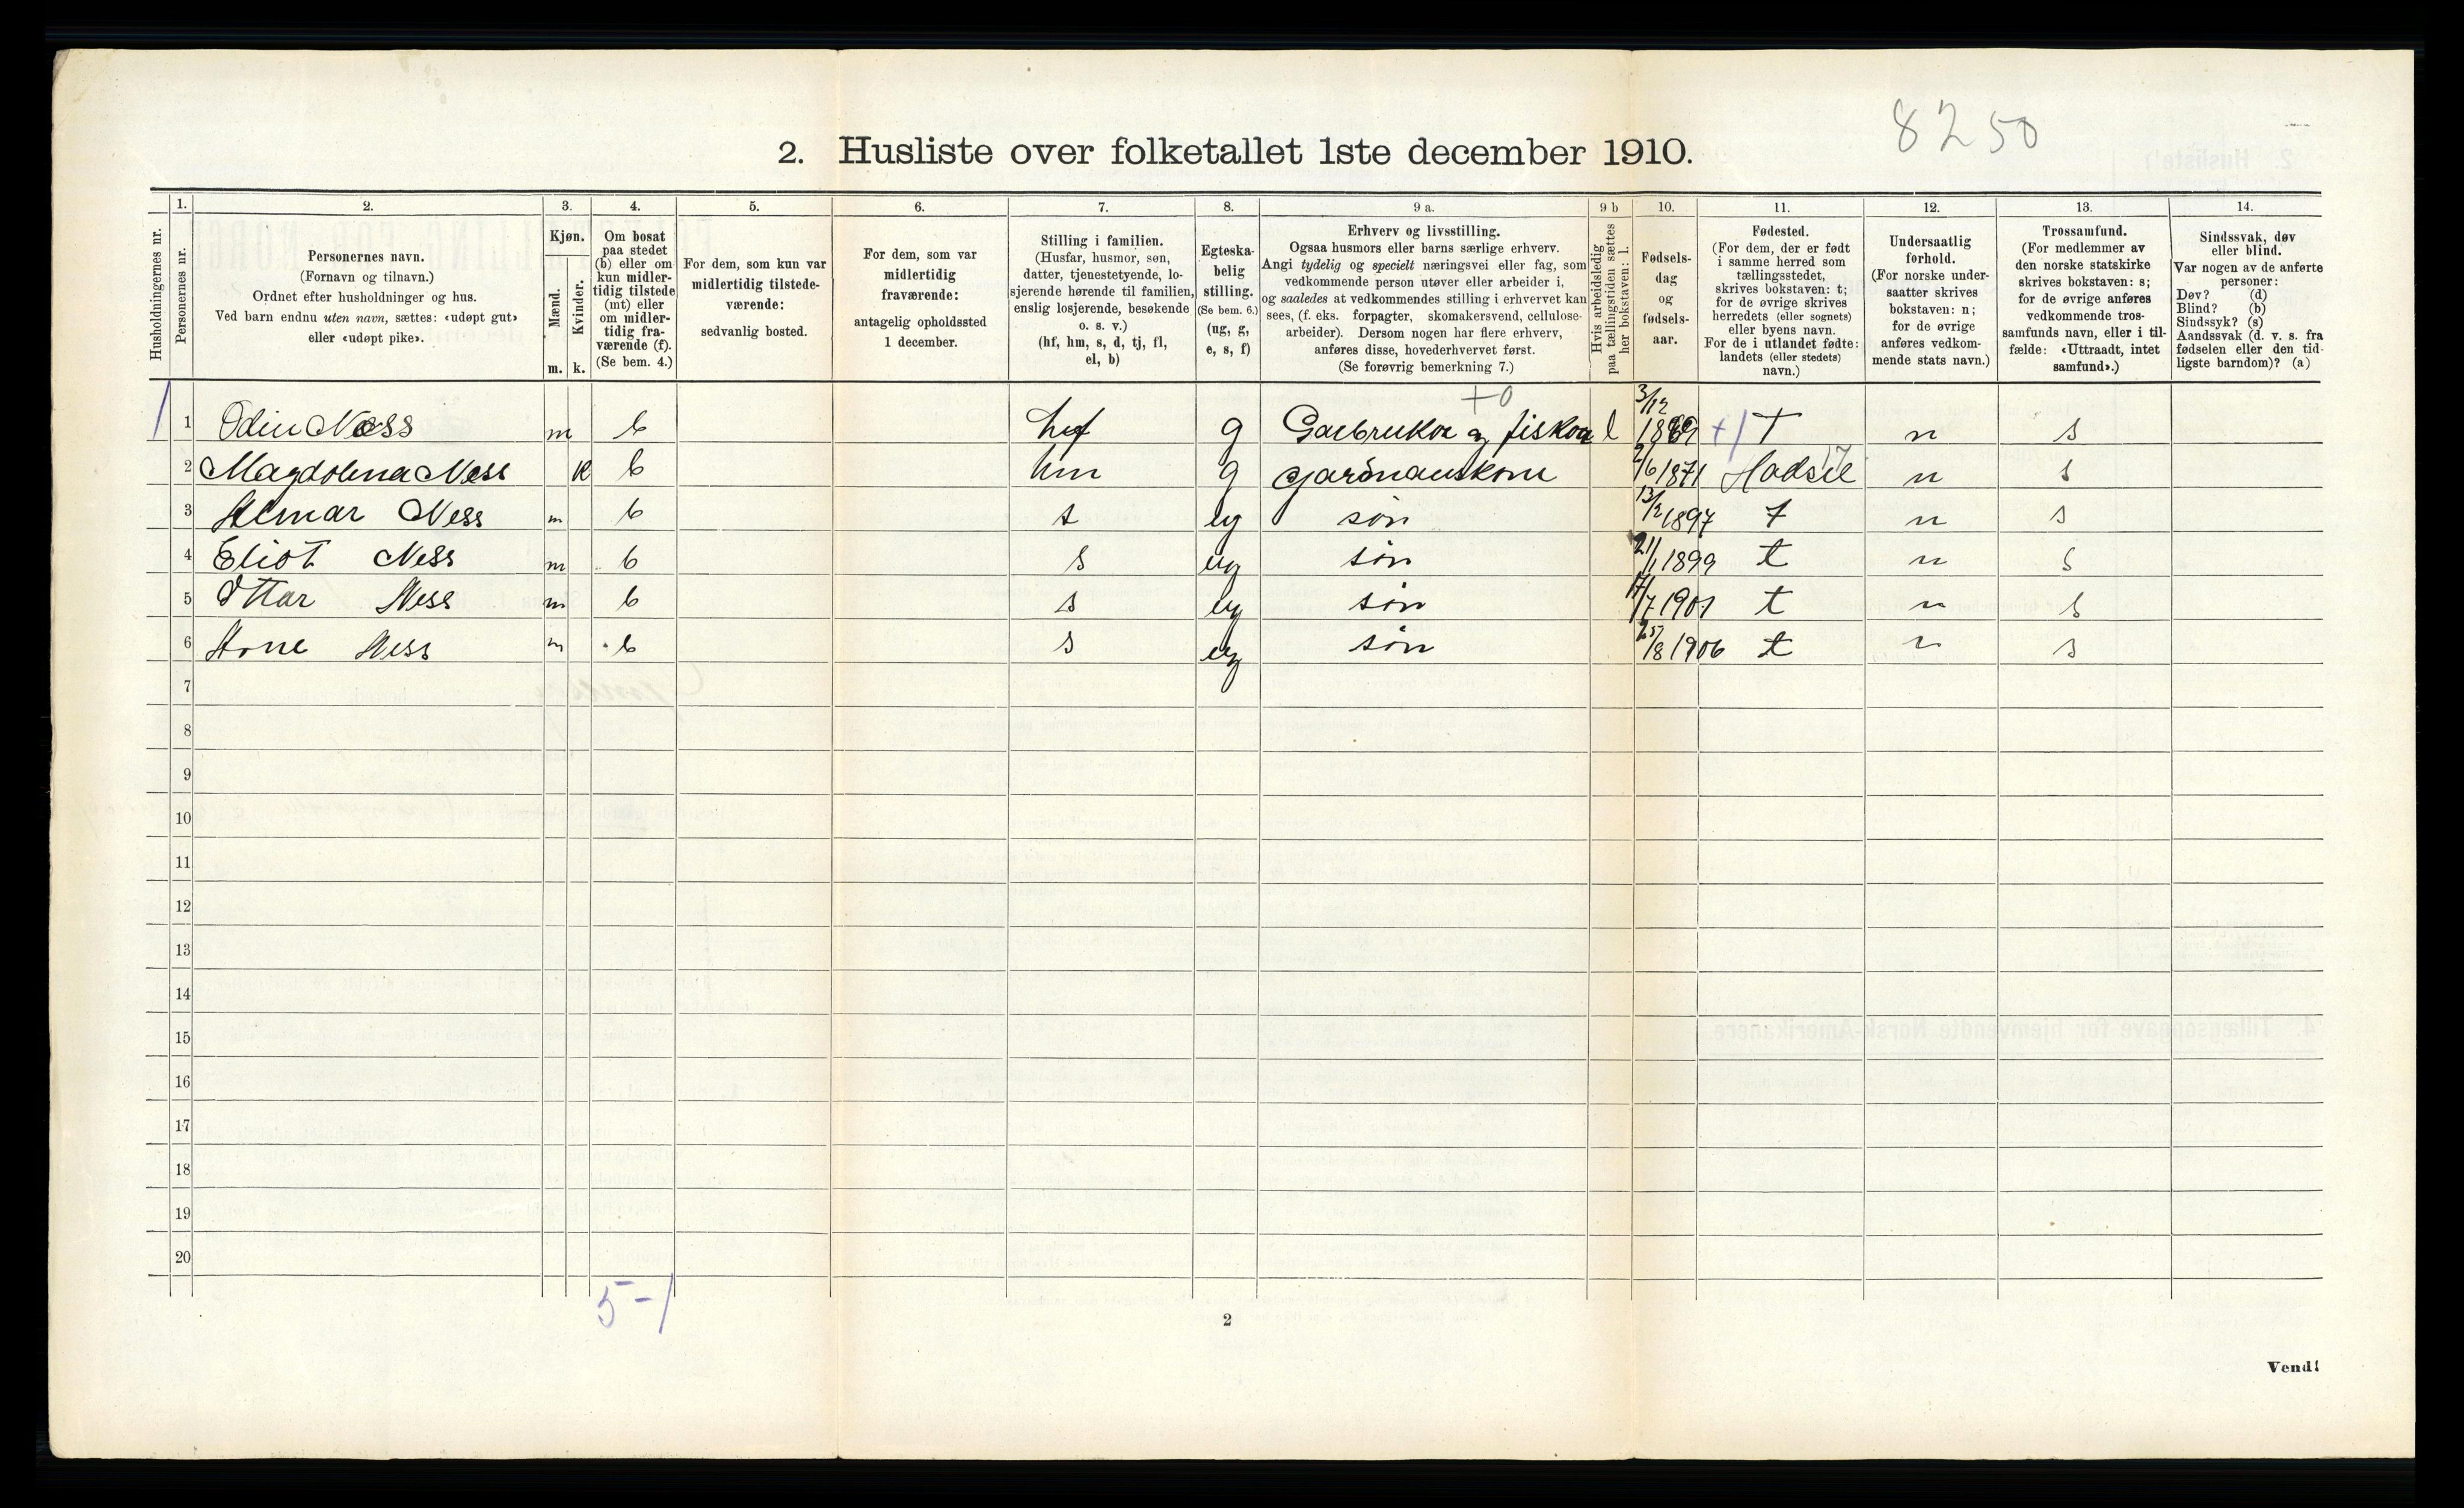 8250
2. Husliste over folketallet 1ste december 1910.
Husholdningernes nr.
1.
Personernes nr.
2.
Personernes navn.
(Fornavn og tilnavn.)
Ordnet efter husholdninger og hus.
Ved barn endnu uten navn, sættes: «udøpt gut»
eller «udøpt pike».
3.
Kjøn.
Mænd.
Kvinder.
m. k.
4.
Om bosat
paa stedet
(b) eller om
kun midler-
tidig tilstede
(mt) eller
om midler-
tidig fra-
værende (f).
(Se bem. 4.)
5.
For dem, som kun var
midlertidig tilstede-
værende:
sedvanlig bosted.
6.
For dem, som var
midlertidig
fraværende:
antagelig opholdssted
1 december.
7.
Stilling i familien.
(Husfar, husmor, søn,
datter, tjenestetyende, lo-
sjerende hørende til familien,
enslig losjerende, besøkende
o. s. v.)
(hf, hm, s, d, tj, fl,
el, b)
8.
Egteska-
belig
stilling.
(Se bem. 6.)
(ug, g,
e, s, f)
9 a.
Erhverv og livsstilling.
Ogsaa husmors eller barns særlige erhverv.
Angi tydelig og specielt næringsvei eller fag, som
vedkommende person utøver eller arbeider i,
og saaledes at vedkommendes stilling i erhvervet kan
sees, (f. eks. forpagter, skomakersvend, cellulose-
arbeider). Dersom nogen har flere erhverv,
anføres disse, hovederhvervet først.
(Se forøvrig bemerkning 7.)
9 b
Hvis arbeidsledig
paa tællingstiden sættes
her bokstaven: l.
10.
Fødsels-
dag
og
fødsels-
aar.
11.
Fødested.
(For dem, der er født
i samme herred som
tællingsstedet,
skrives bokstaven: t;
for de øvrige skrives
herredets (eller sognets)
eller byens navn.
For de i utlandet fødte:
landets (eller stedets)
navn.)
12.
Undersaatlig
forhold.
(For norske under-
saatter skrives
bokstaven: n;
for de øvrige
anføres vedkom-
mende stats navn.)
13.
Trossamfund.
(For medlemmer av
den norske statskirke
skrives bokstaven: s;
for de øvrige anføres
vedkommende tros-
samfunds navn, eller i til-
fælde: «Uttraadt, intet
samfund».)
14.
Sindssvak, døv
eller blind.
Var nogen av de anførte
personer:
Døv? (d)
Blind? (b)
Sindssyk? (s)
Aandssvak (d. v. s. fra
fødselen eller den tid-
ligste barndom)? (a)
+0
1 1 Odin Ness m b hf g Gaardbruker og fisker l 3/12 1869 +1 T n s
2 Magdolena Ness k b hm g gardmanskone 2/6 1871 Hadsel 17 n s
3 Almar Ness m b s ug søn 13/2 1897 t n s
4 Eliot Ness m b s ug søn 21/1 1899 t n s
5 Ottar Ness m b s ug søn 17/7 1901 t n s
6 Arne Ness m b s ug søn 25/8 1906 t n s
7
8
9
10
11
12
13
14
15
16
17
18
19
20
5-1
2
Vend!